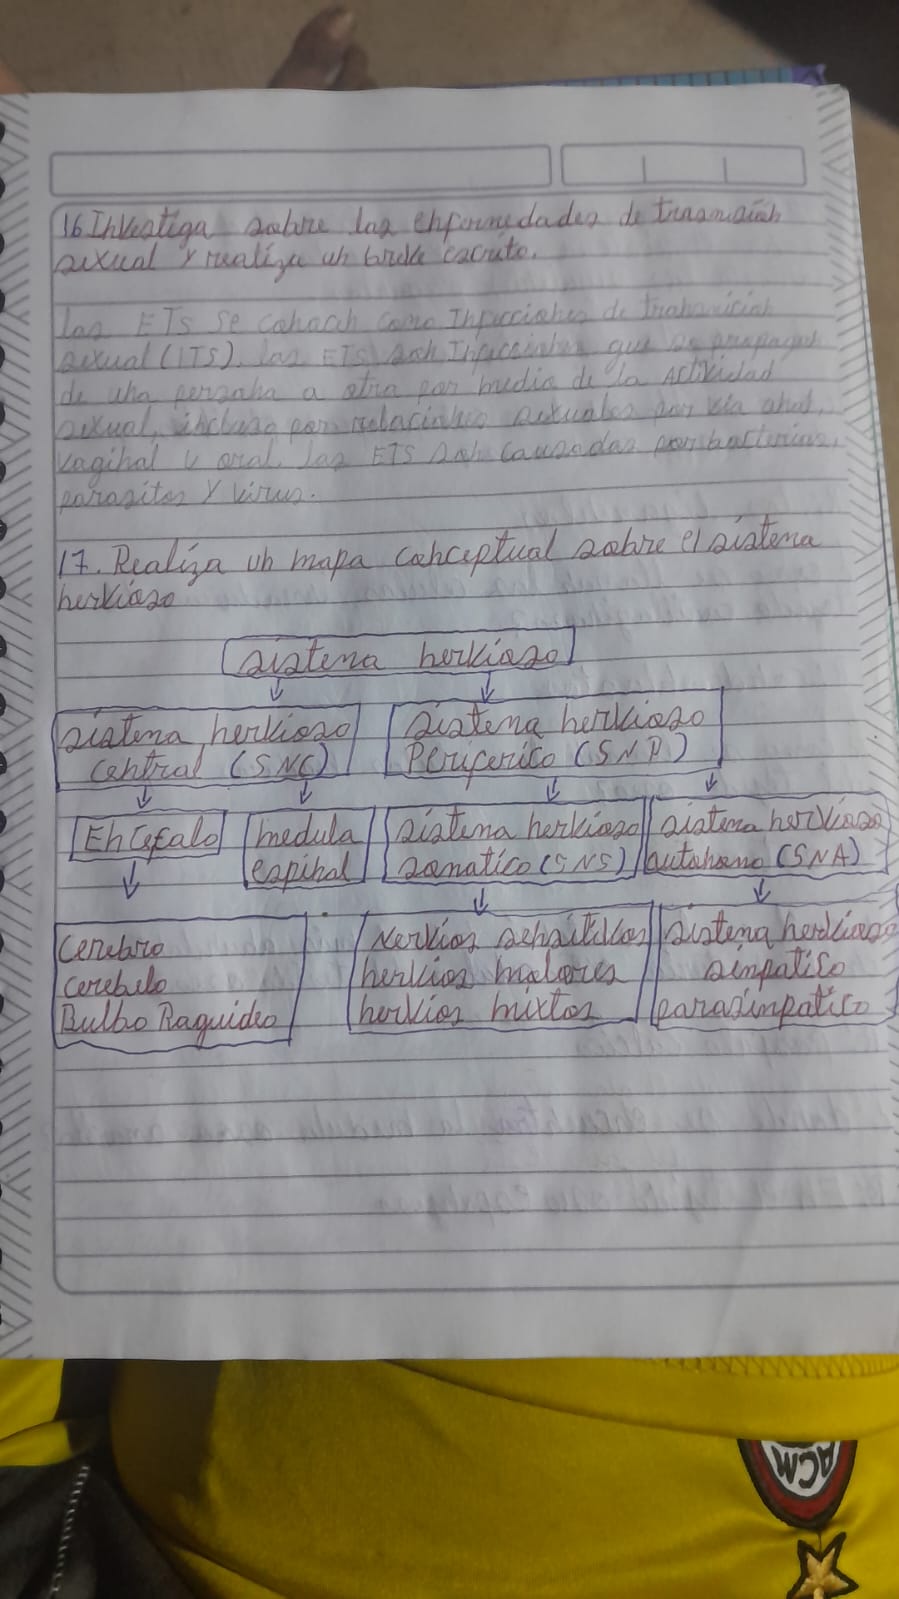 16 Investiga sobre las enfermedades de trasmisión
sexual y realiza un breve escrito.
Las ETS se conocen como Infecciones de transmición
sexual (ITS). Las ETS son Infecciones que se propagan
de una persona a otra por medio de la Actividad
sexual, incluso por relaciones sexuales por vía anal,
vaginal y oral. Las ETS son causadas por bacterias,
parasitos y virus.
17. Realiza un mapa conceptual sobre el sistema
nervioso
sistema nervioso
sistema nervioso
central (SNC)
sistema nervioso
Periferico (SNP)
Encefalo
medula
espinal
sistema nervioso
somatico (SNS)
sistema nervioso
autonomo (SNA)
Cerebro
cerebelo
Bulbo Raquideo
Nervios sensitivos
nervios motores
nervios mixtos
sistema nervioso
simpatico
parasimpatico
ACM